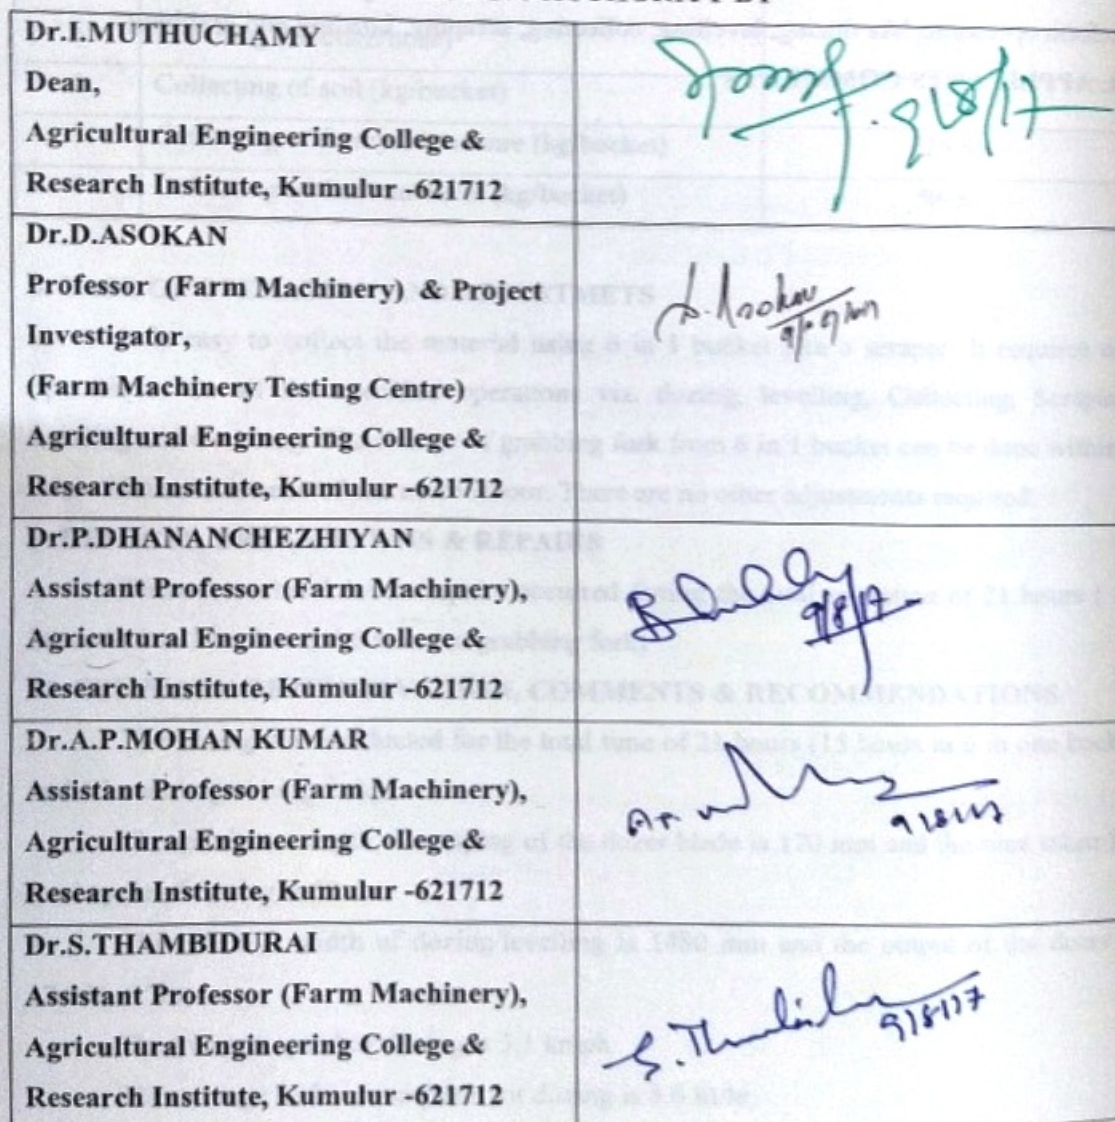 Dr.I.MUTHUCHAMY
Dean,
Agricultural Engineering College &
Research Institute, Kumulur -621712
9/8/17
Dr.D.ASOKAN
Professor (Farm Machinery) & Project
Investigator,
(Farm Machinery Testing Centre)
Agricultural Engineering College &
Research Institute, Kumulur -621712
D.Asokan
Dr.P.DHANANCHEZHIYAN
Assistant Professor (Farm Machinery),
Agricultural Engineering College &
Research Institute, Kumulur -621712
9/8/17
Dr.A.P.MOHAN KUMAR
Assistant Professor (Farm Machinery),
Agricultural Engineering College &
Research Institute, Kumulur -621712
9/8/17
Dr.S.THAMBIDURAI
Assistant Professor (Farm Machinery),
Agricultural Engineering College &
Research Institute, Kumulur -621712
9/8/17